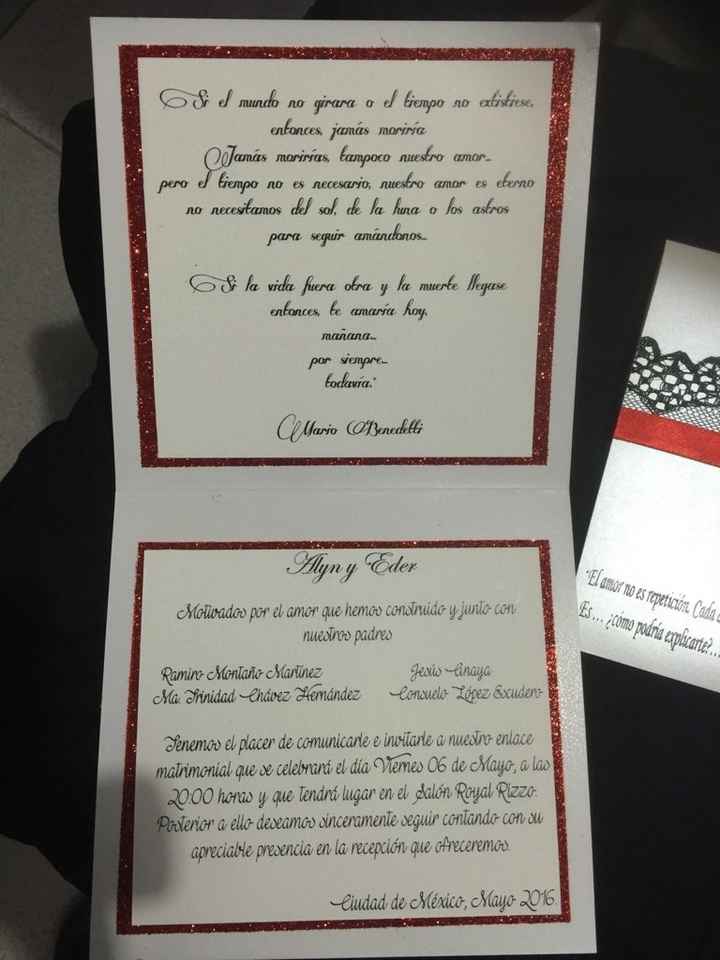 Si el mundo no girara o el tiempo no extistiese,
entonces, jamás moriría
Jamás morirías, tampoco nuestro amor...
pero el tiempo no es necesario, nuestro amor es eterno
no necesitamos del sol, de la luna o los astros
para seguir amándonos...
Si la vida fuera otra y la muerte llegase
entonces, te amaría hoy,
mañana...
por siempre...
todavía."
Mario Benedetti
Alyn y Eder
Motivados por el amor que hemos construido y junto con
nuestros padres
Ramiro Montaño Martínez
Ma. Trinidad Chávez Hernández
Jesús Anaya
Consuelo López Escudero
Tenemos el placer de comunicarle e invitarle a nuestro enlace
matrimonial que se celebrará el día Viernes 06 de Mayo, a las
20:00 horas y que tendrá lugar en el Salón Royal Rizzo.
Posterior a ello deseamos sinceramente seguir contando con su
apreciable presencia en la recepción que ofreceremos.
Ciudad de México, Mayo 2016.
"El amor no es repetición. Cada
Es... ¿cómo podría explicarte?...